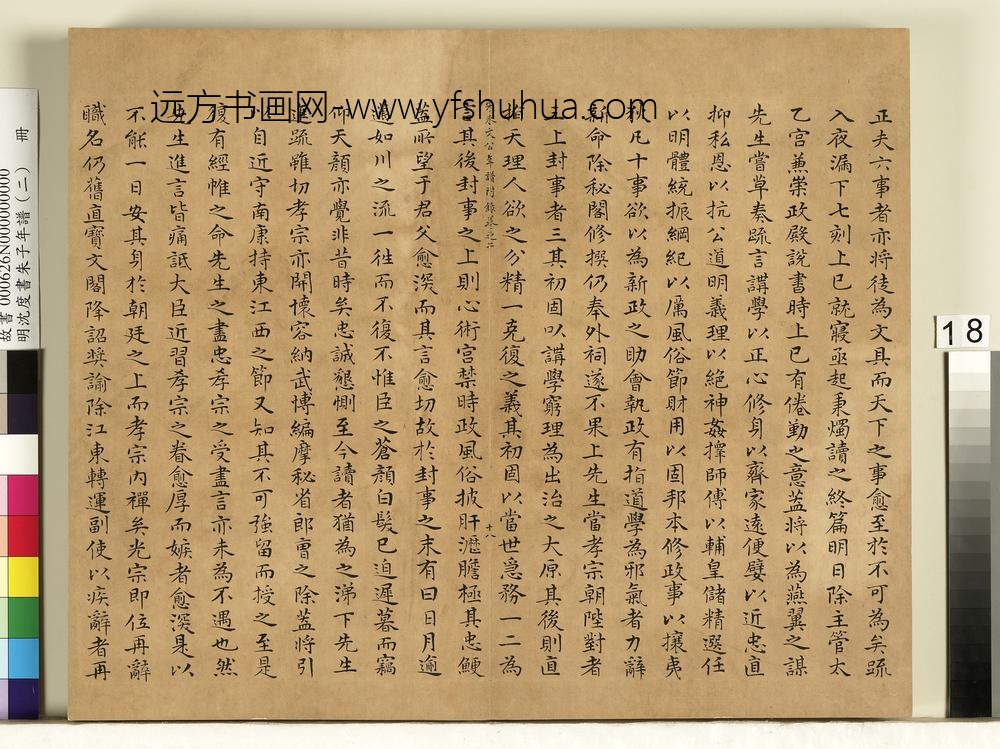 远方书画网-www.yfshuhua.com
正夫六事者亦將徒為文具而天下之事愈至於不可為矣疏
入夜漏下七刻上已就寢亟起秉燭讀之終篇明日除主管太
乙宮兼崇政殿說書時上已有倦勤之意蓋將以為燕翼之謀
先生嘗草奏疏言講學以正心修身以齊家遠便嬖以近忠直
抑私恩以抗公道明義理以絕神姦擇師傅以輔皇儲精選任
以明體統振綱紀以厲風俗節財用以固邦本修政事以攘夷
狄凡十事欲以為新政之助會執政有指道學為邪氣者力辭
新命除秘閣修撰仍奉外祠遂不果上先生當孝宗朝陛對者
三上封事者三其初固以講學窮理為出治之大原其後則直
朱文公年譜附錄卷之二
十八
指天理人欲之分精一克復之義其初固以當世急務一二為
言其後封事之上則心術宮禁時政風俗披肝瀝膽極其忠鯁
蓋所望于君父愈深而其言愈切故於封事之末有曰日月逾
邁如川之流一往而不復不惟臣之蒼顏白髮已迫遲暮而竊
仰天顏亦覺非昔時矣忠誠懇惻至今讀者猶為之涕下先生
進疏雖切孝宗亦開懷容納武博編摩秘省郎曹之除蓋將引
以自近守南康持東江西之節又知其不可強留而授之至是
復有經帷之命先生之盡忠孝宗之受盡言亦未為不遇也然
先生進言皆痛詆大臣近習孝宗之眷愈厚而嫉者愈深是以
不能一日安其身於朝廷之上而孝宗內禪矣光宗即位再辭
職名仍舊直寶文閣降詔獎諭除江東轉運副使以疾辭者再
故書 000626N000000000
明沈度書朱子年譜（二） 冊
18